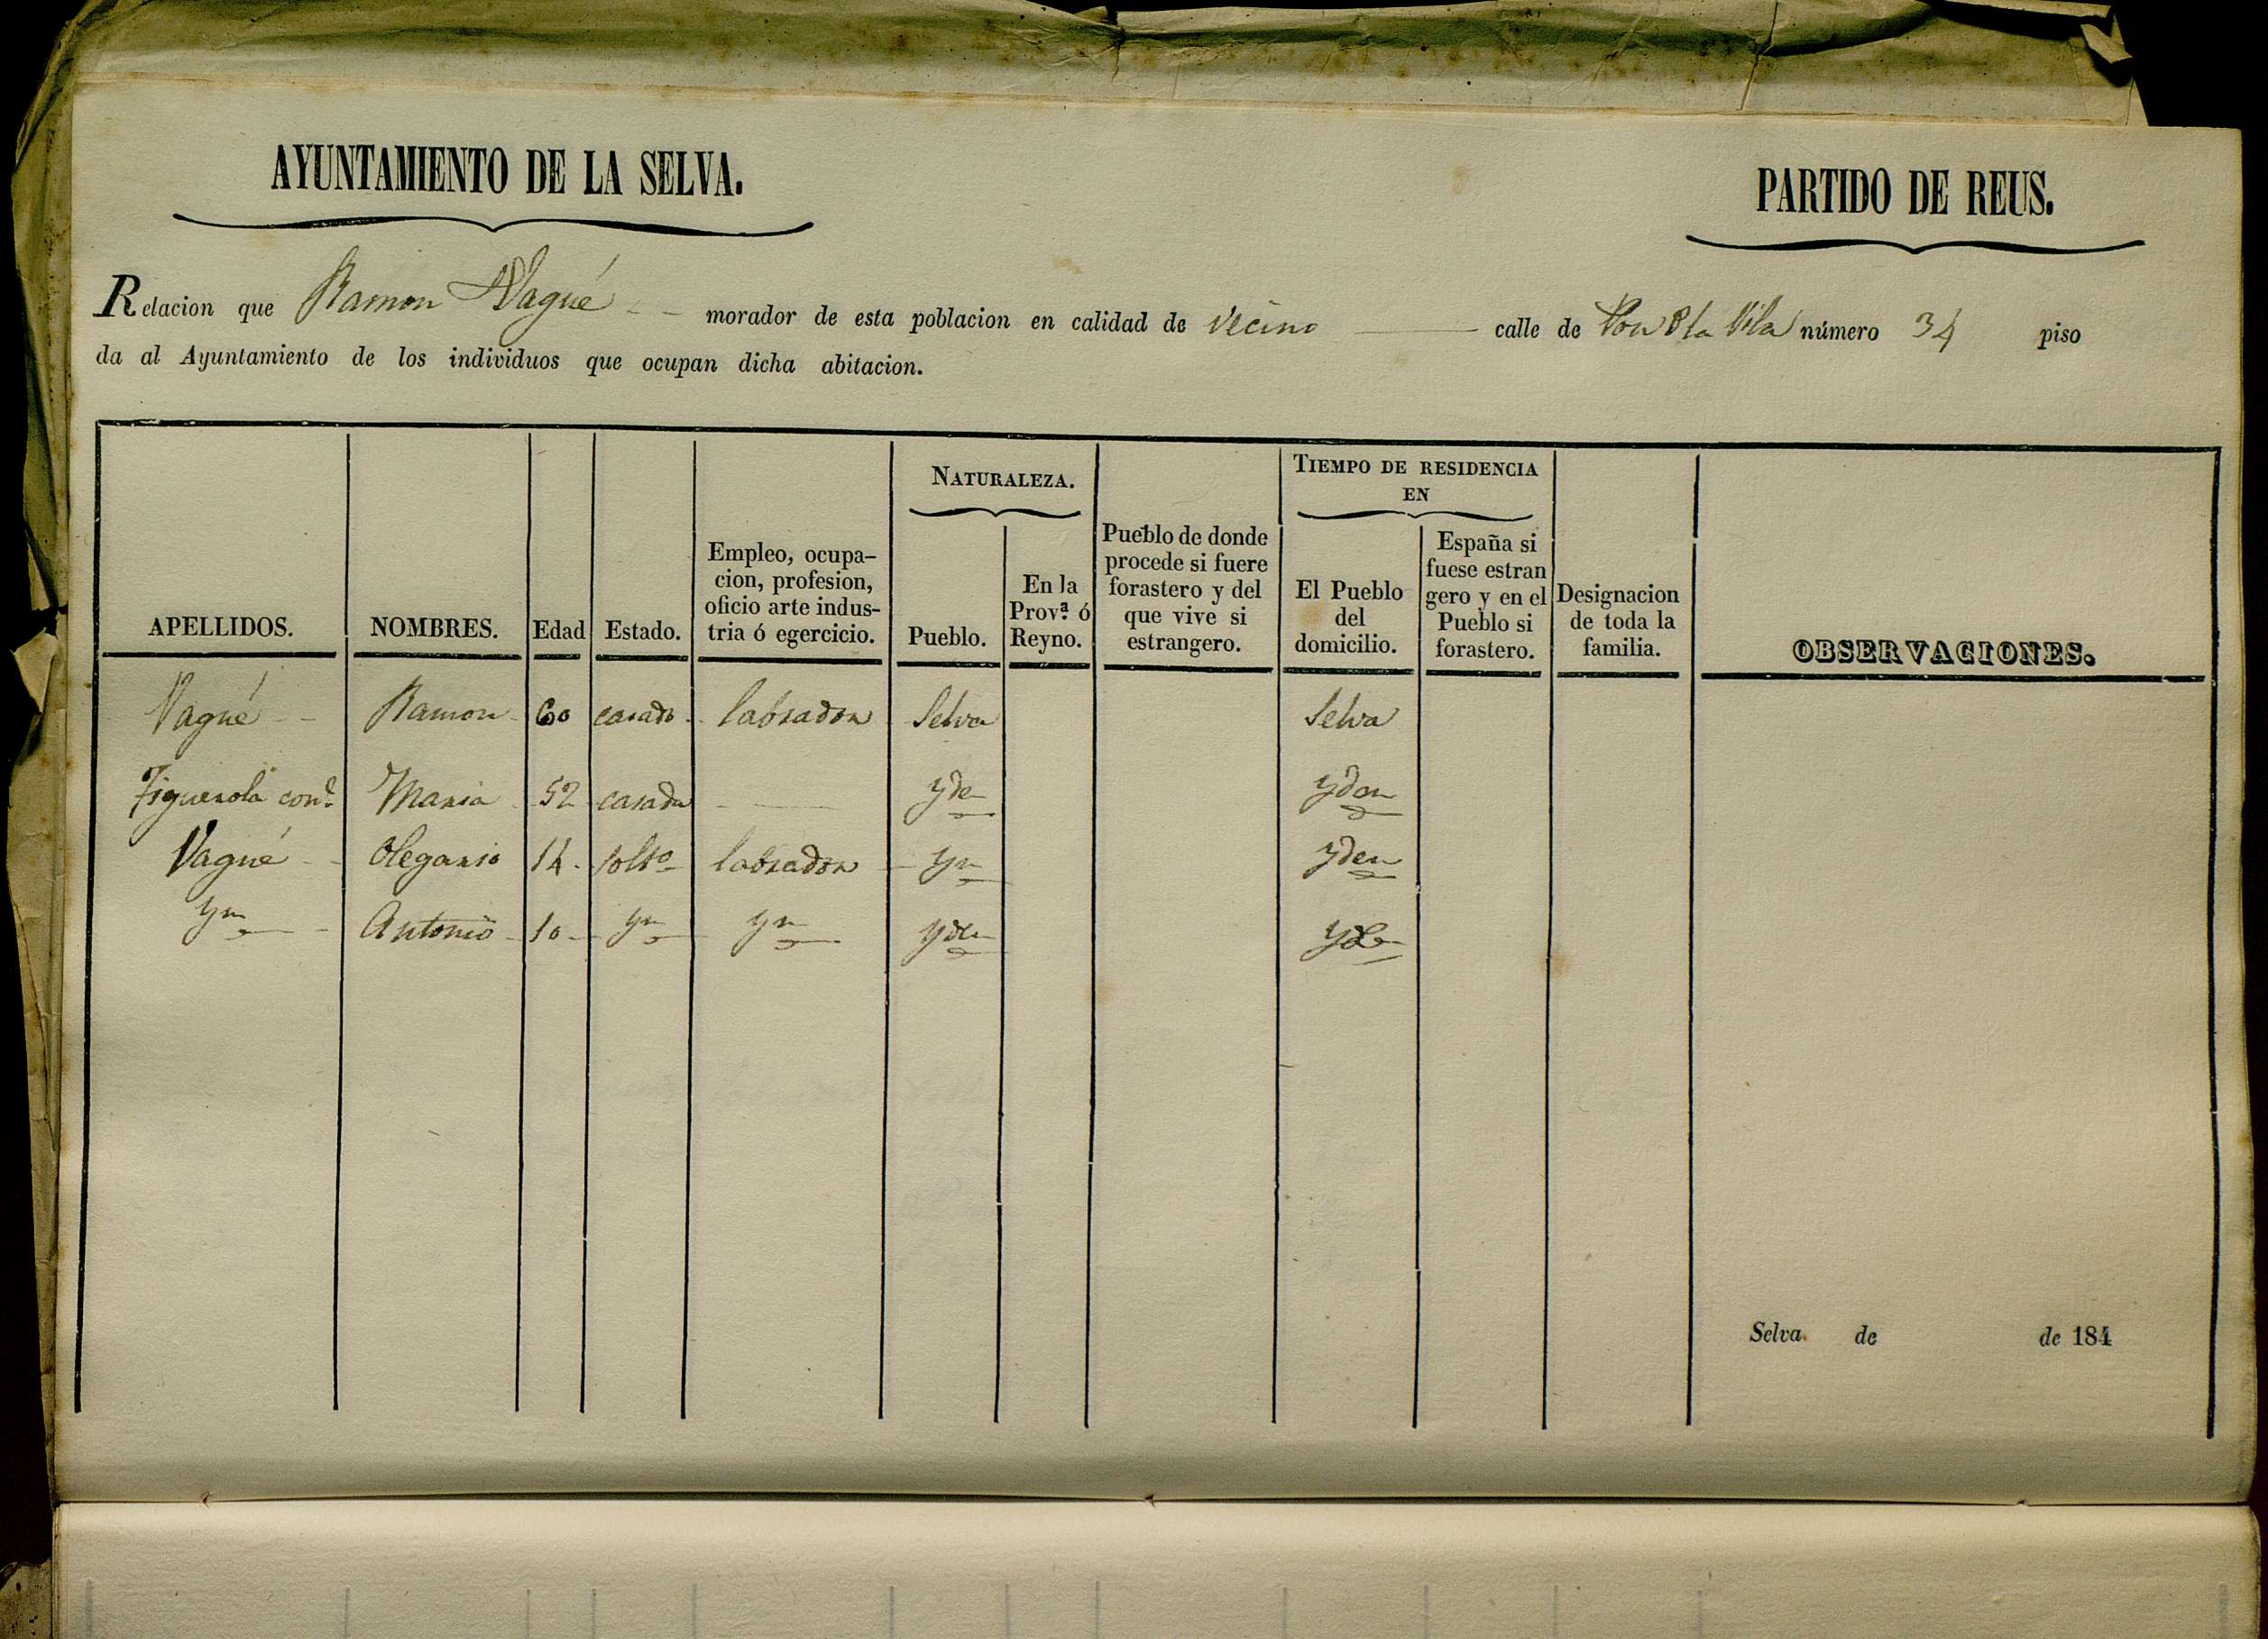 AYUNTAMIENTO DE LA SELVA.
PARTIDO DE REUS.
Relacion que Ramon Vagué morador de esta poblacion en calidad de vecino calle de la Vila número 34 piso
da al Ayuntamiento de los individuos que ocupan dicha abitacion.
NATURALEZA.
TIEMPO DE RESIDENCIA
EN
APELLIDOS.
NOMBRES.
Edad
Estado.
Empleo, ocupa-
cion, profesion,
oficio arte indus-
tria ó egercicio.
Pueblo.
En la
Prov.ª ó
Reyno.
Pueblo de donde
procede si fuere
forastero y del
que vive si
estrangero.
El Pueblo
del
domicilio.
España si
fuese estran
gero y en el
Pueblo si
forastero.
Designacion
de toda la
familia.
OBSERVACIONES.
Vagué Ramon 60 casado labrador Selva Selva
Figuerola con.e Maria 52 casada yde ydem
Vagué Olegario 14 solt.o labrador ym ydem
ym Antonio 10 ym ym ydem yde
Selva de de 184